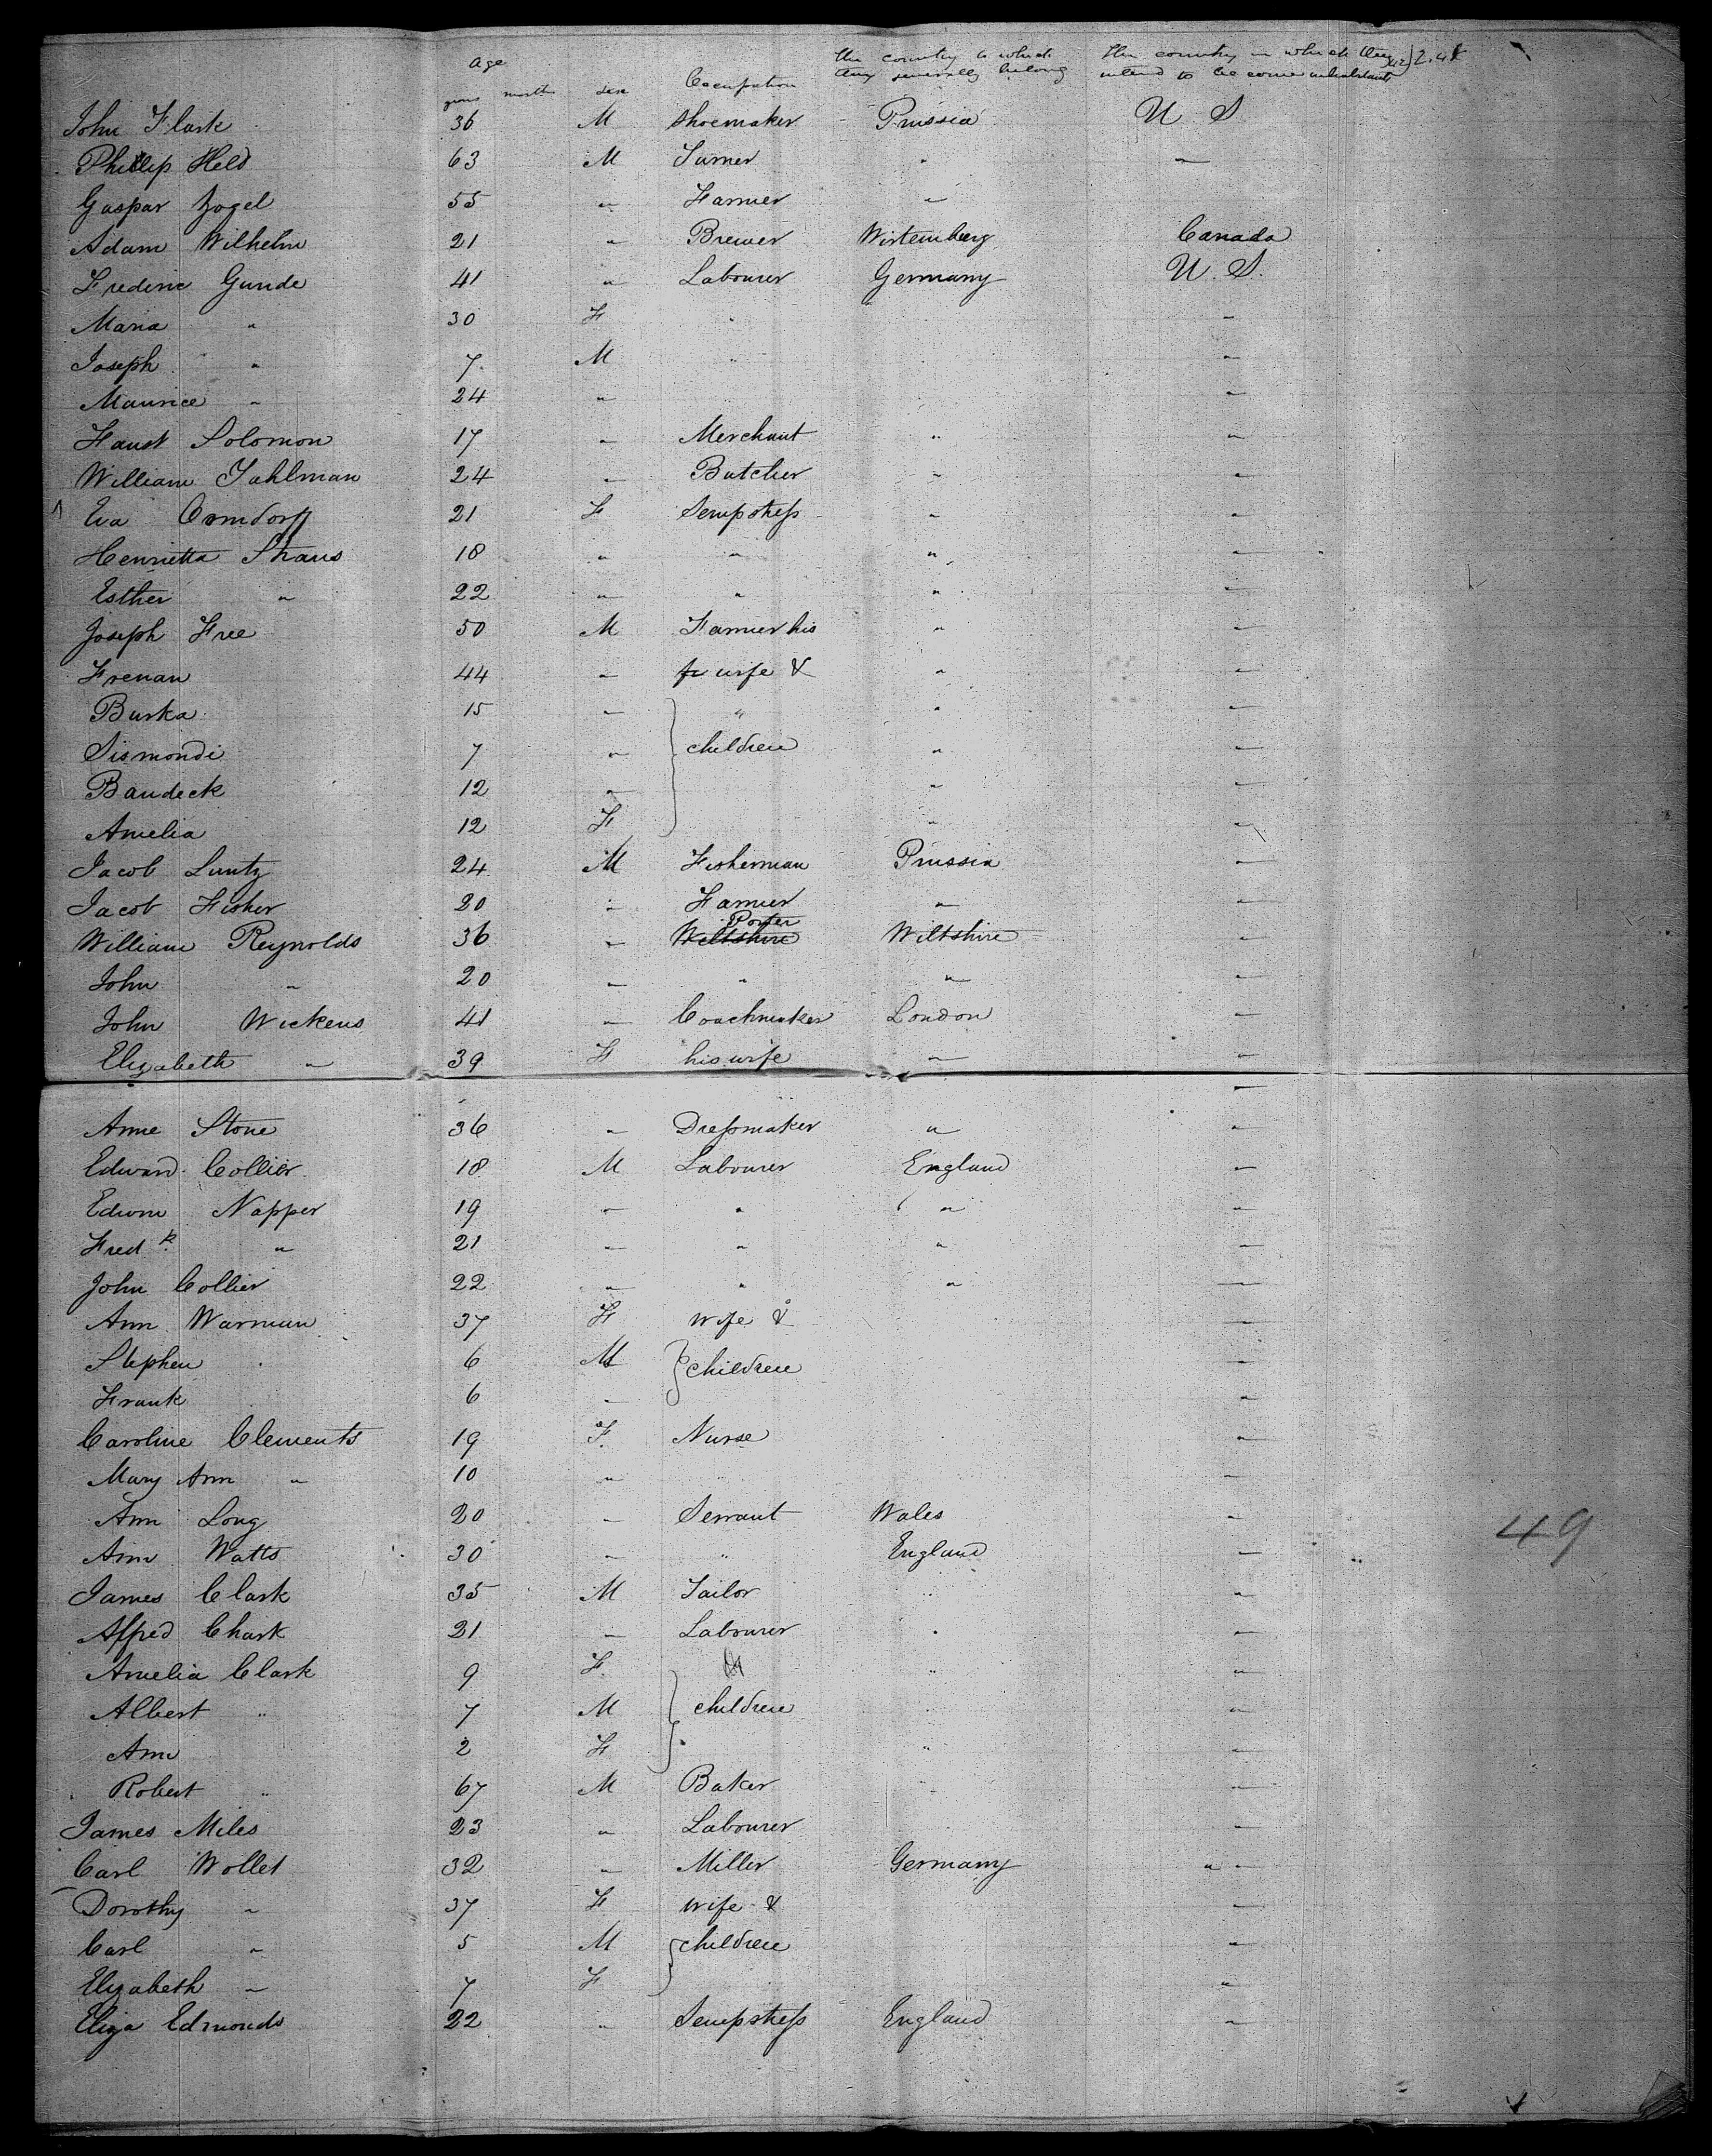 Age The country to which The country in which they 2.41
years months sex Occupation they severally belong intend to become inhabitants
John Flark 36 M Shoemaker Prussia U S
Phillip Held 63 M Turner " "
Gaspar Zogel 55 " Farmer "
Adam Wilhelm 21 " Brewer Wirtemberg Canada
Frederic Gunde 41 " Labourer Germany U. S.
Maria " 30 F " "
Joseph " 7 M " "
Maurice " 24 " "
Faust Solomon 17 " Merchant " "
William Tahlman 24 " Butcher " "
Eva Orendorff 21 F Sempstress " "
Henrietta Straus 18 " " " "
Esther " 22 " " " "
Joseph Free 50 M Farmer his " "
Frenan 44 " wife & " "
Burka 15 " " " "
Sismondi 7 " children " "
Baudeck 12 " " "
Amelia 12 F " "
Jacob Luntz 24 M Fisherman Prussia "
Jacob Fisher 20 " Farmer " "
Porter
William Reynolds 36 " Wiltshire Wiltshire "
John " 20 " " " "
John Wickens 41 " Coachmaker London "
Elizabeth " 39 F his wife " "
"
Anne Stone 36 " Dressmaker " "
Edward Collier 18 M Labourer England "
Edwin Napper 19 " " " "
Fredk " 21 " " " "
John Collier 22 " " " "
Ann Warman 37 F wife & "
Stephen 6 M children "
Frank 6 " "
Caroline Clements 19 F. Nurse "
Mary Ann " 10 " "
Ann Long 20 " Servant Wales "
49
Ann Watts 30 " " England "
James Clark 35 M Tailor " "
Alfred Chark 21 " Labourer " "
Amelia Clark 9 F. " "
Albert " 7 M children " "
Ann 2 F " "
Robert " 67 M Baker " "
James Miles 23 " Labourer "
Carl Wollet 32 " Miller Germany "
Dorothy " 37 F wife & "
Carl " 5 M children "
Elizabeth " 7 F "
Eliza Edmonds 22 " Sempstress England "